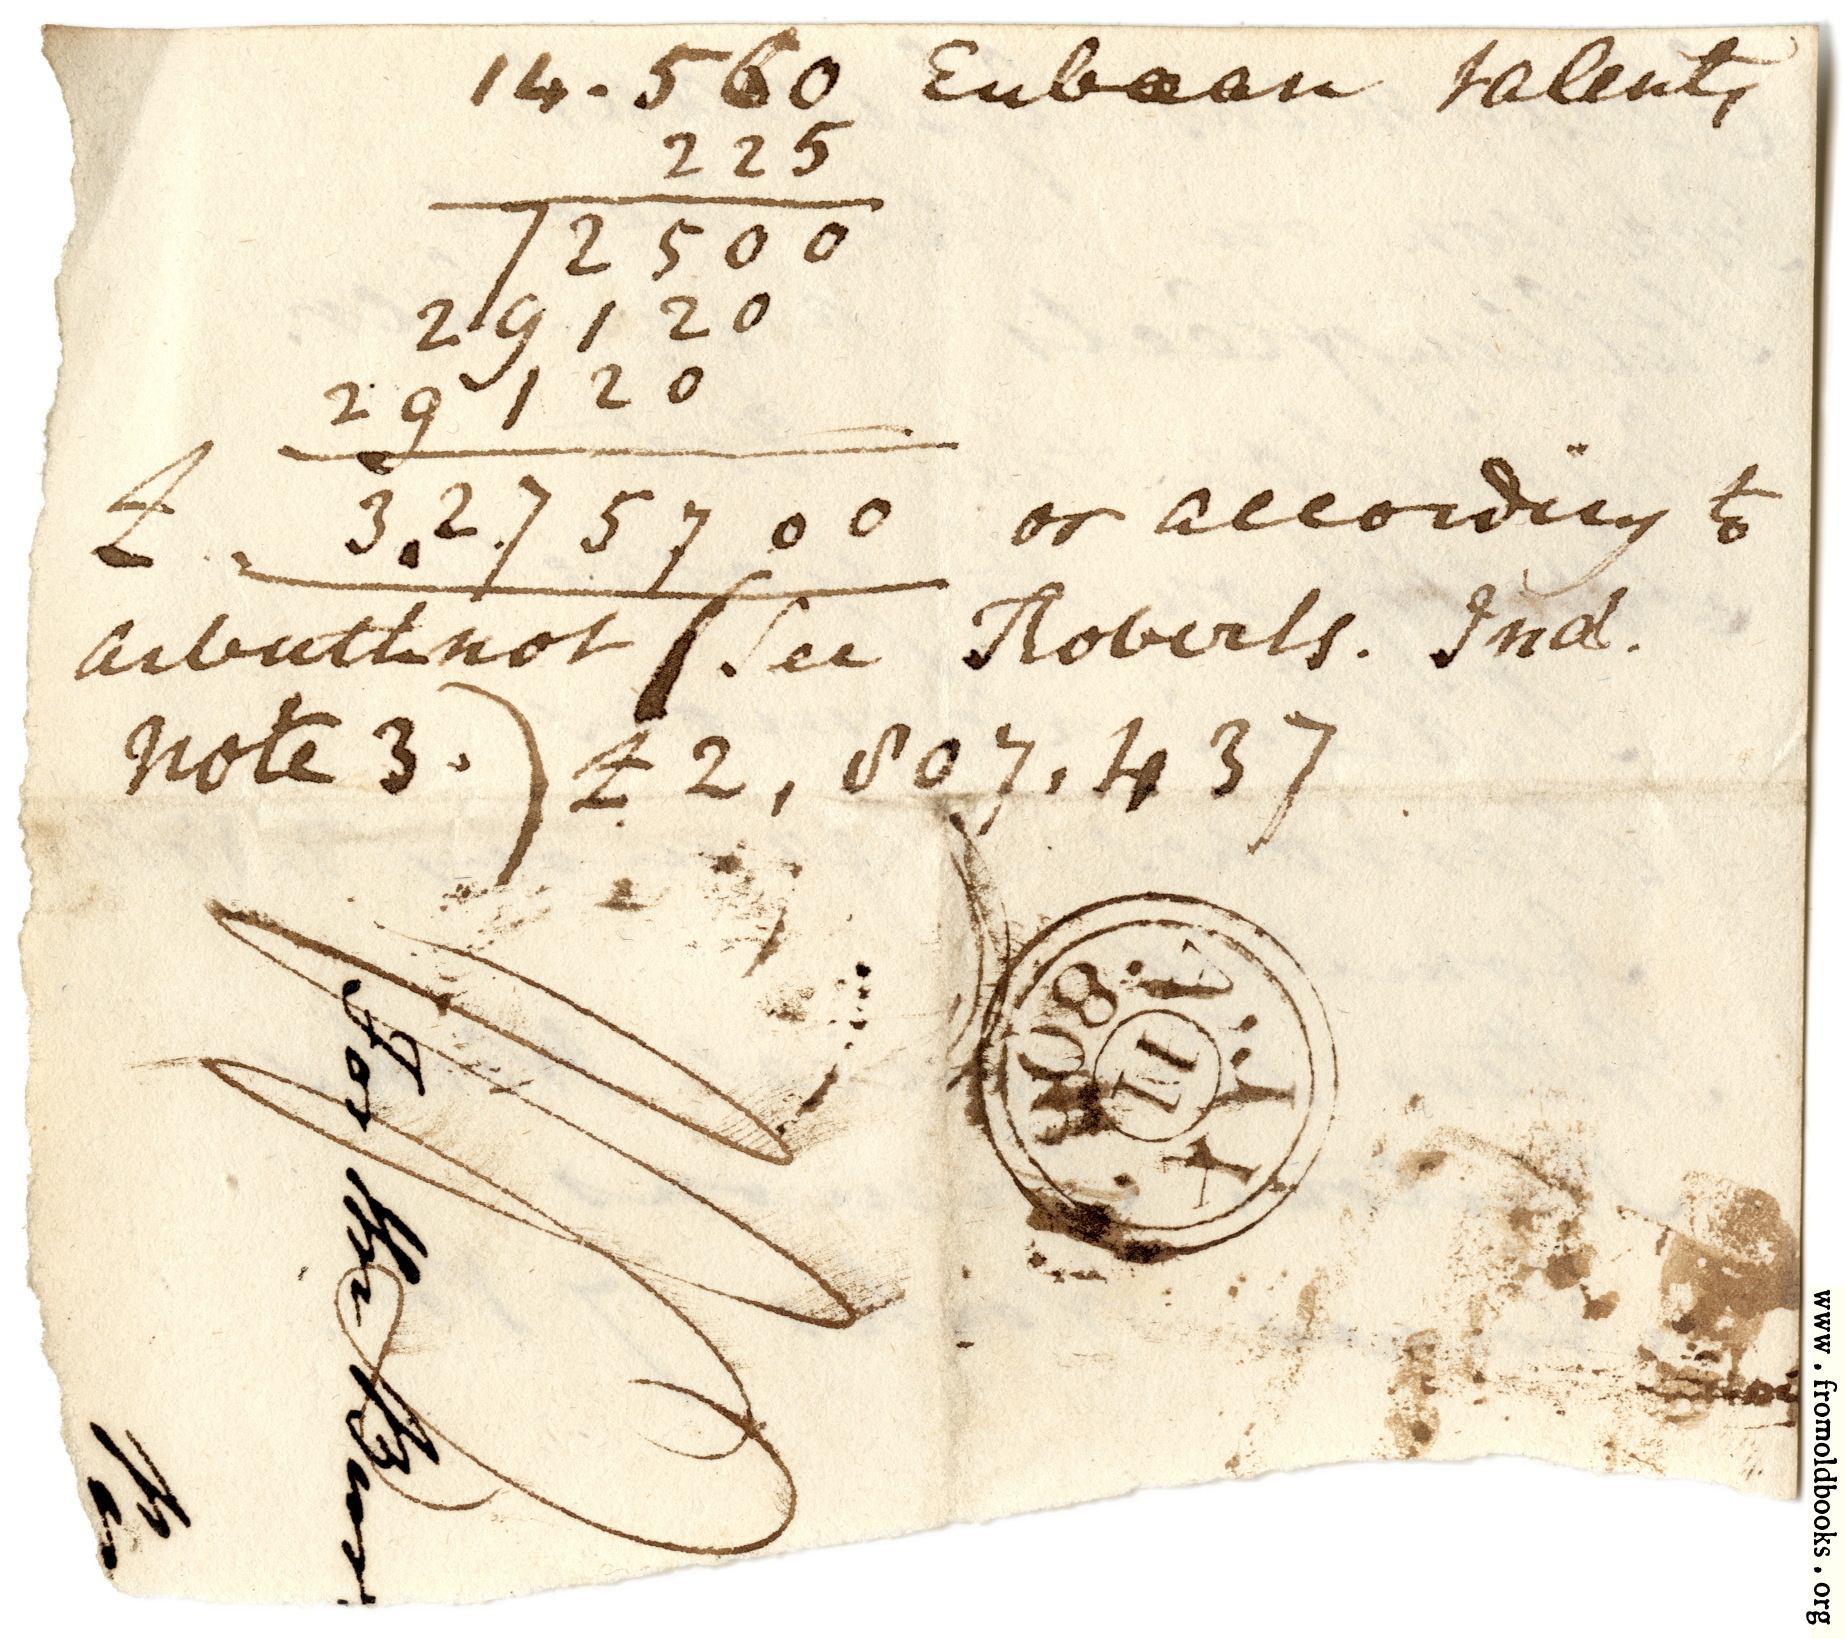 14.560 Eubœan talents
225
72500
29120
29120
£ 3,275700 or according to
arbuthnot (See Roberts. Ind.
note 3.) £2,807,437
808
For the Bur
www.fromoldbooks.org